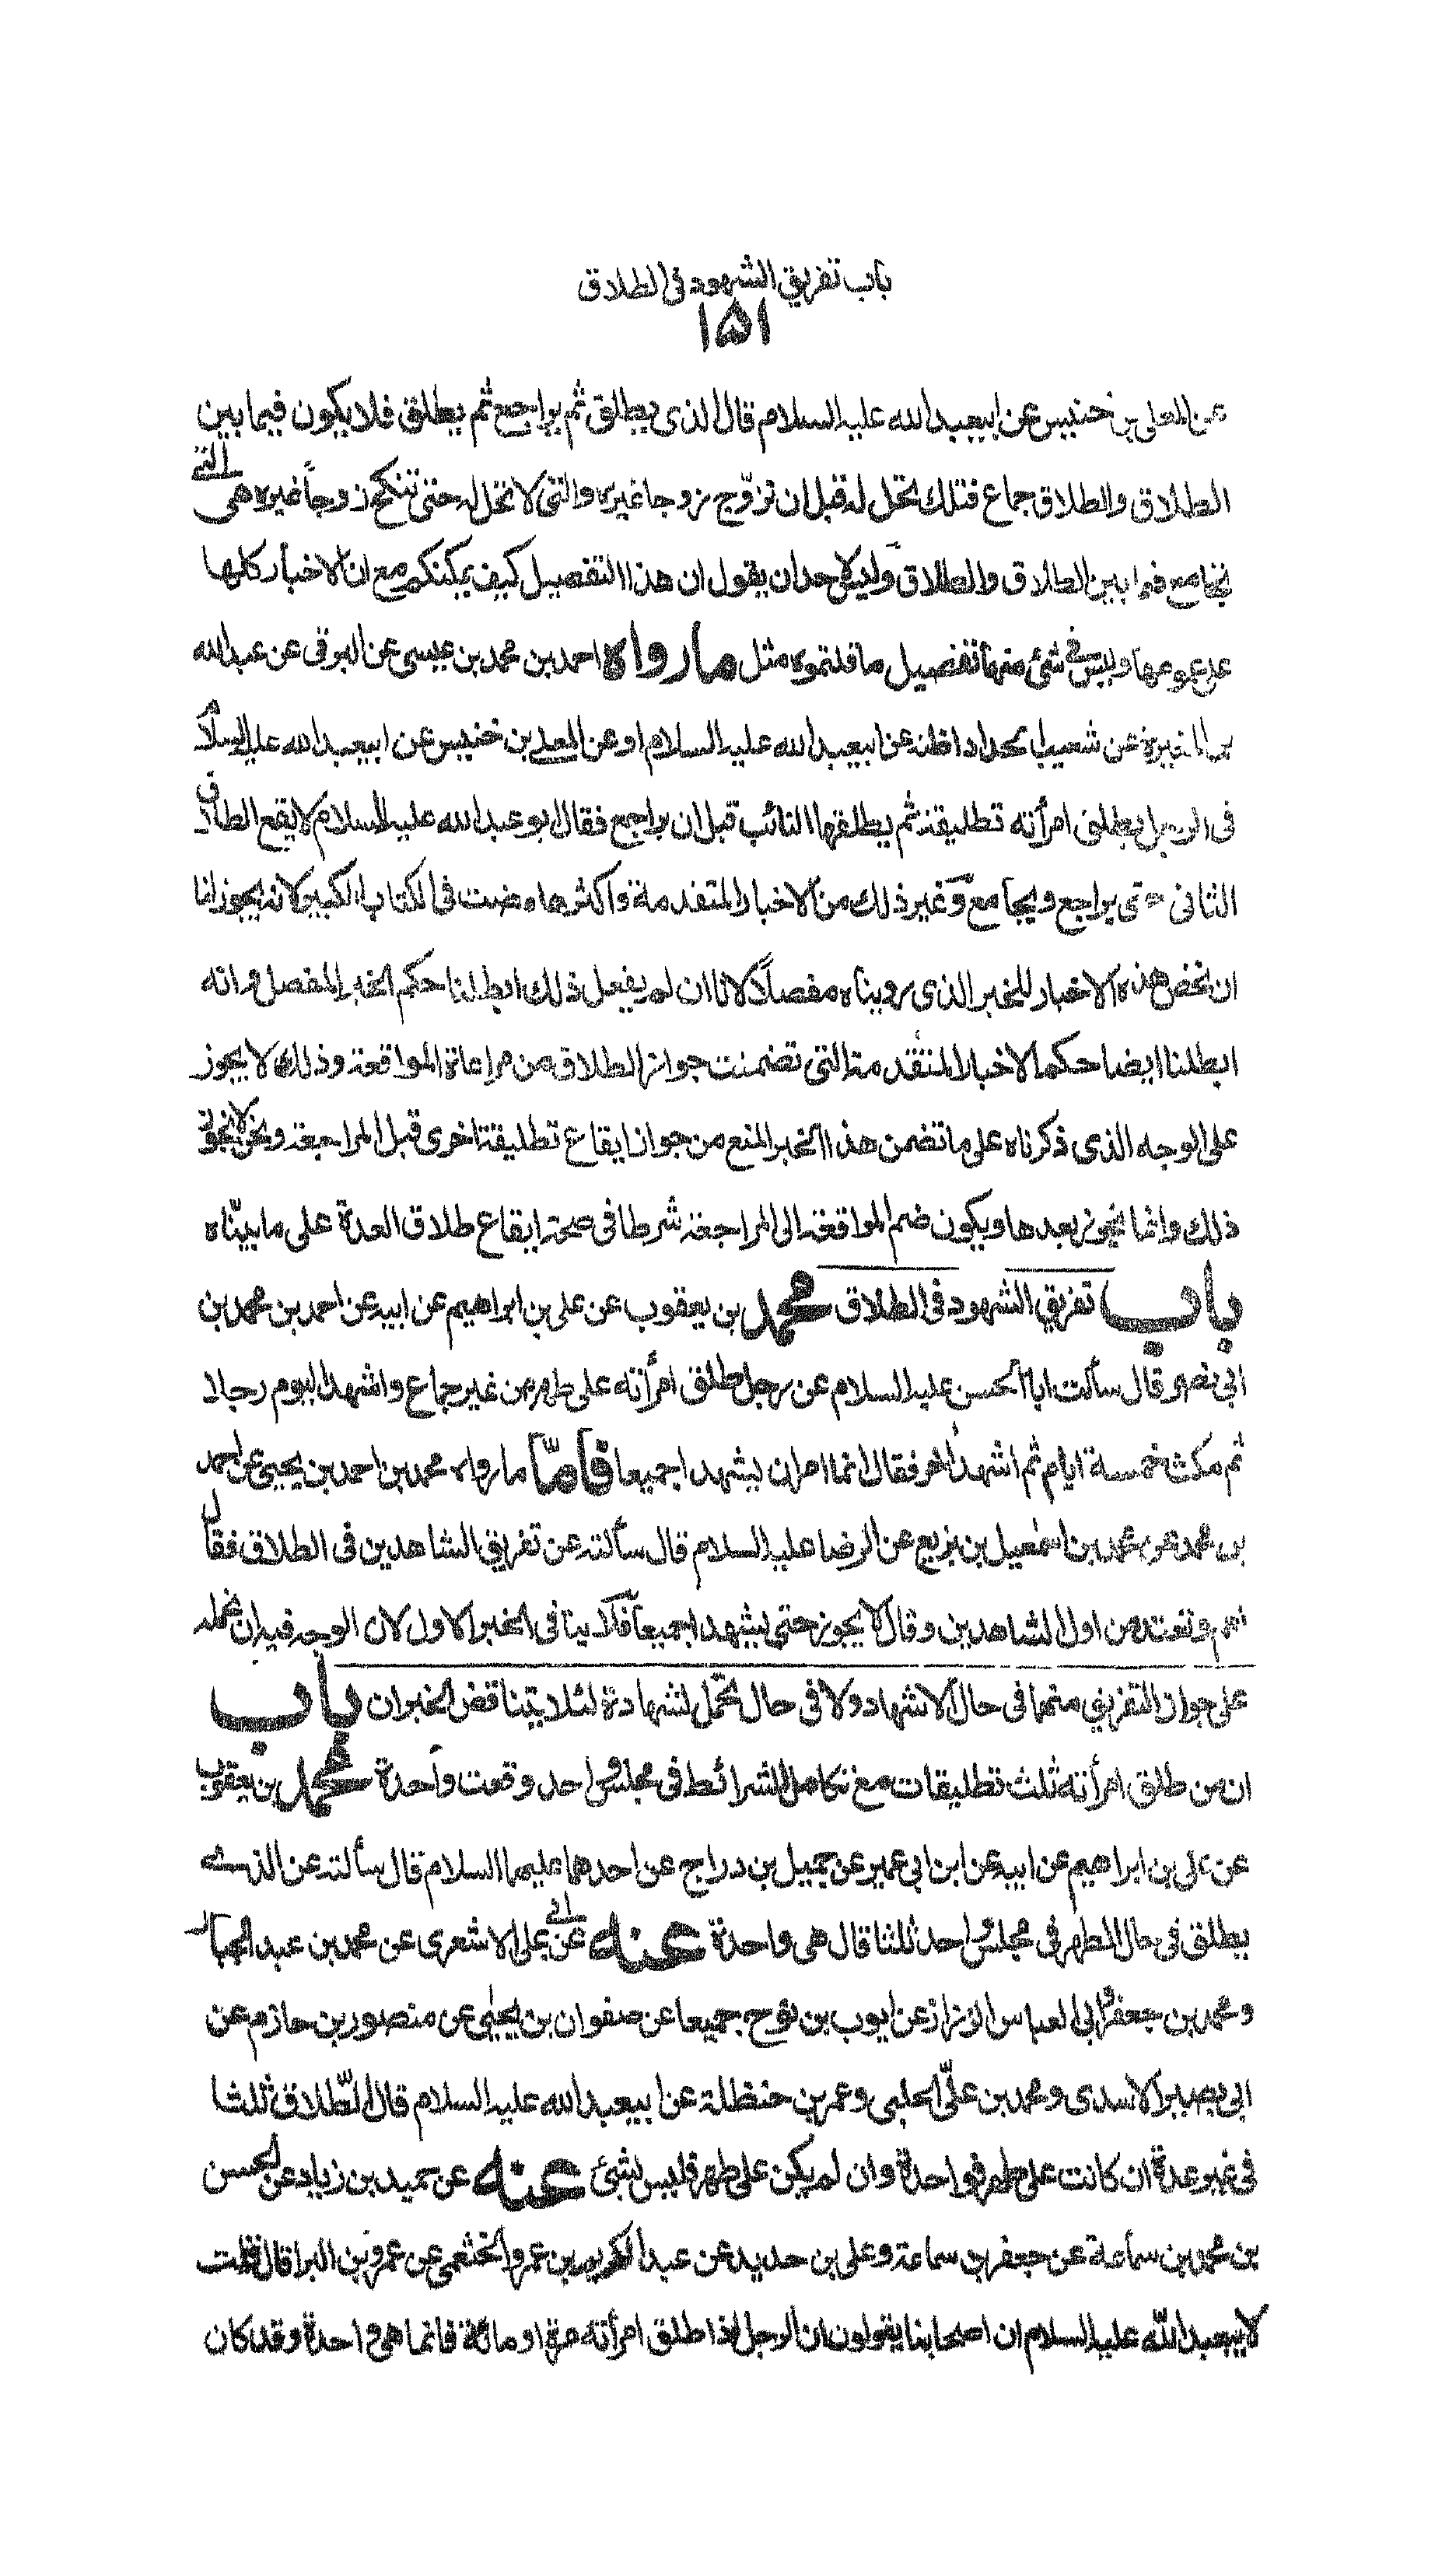 باب تفريق الشهود فى الطلاق
١٥١
عن المعلى بن خنيس عن ابيعبد الله عليه السلام قال الذى يطلق ثم يراجع ثم يطلق فلا يكون فيما بين
الطلاق والطلاق جماع فتلك تحل له قبل ان تزوّج زوجا غيره والتى لا تحل له حتى تنكح زوجاً غيره هى التى
تجامع فيما بين الطلاق والطلاق وليس لاحد ان يقول ان هذا التفصيل كيف يمكنكم مع ان الاخبار كلها
على عمومها وليس فى شئ منها تفصيل ما قلتموه مثل ما رواه احمد بن محمد بن عيسى عن البرقى عن عبد الله
بن المغيرة عن شعيب الحداد اظنه عن ابيعبد الله عليه السلام او عن المعلى بن خنيس عن ابيعبد الله عليه السلام
فى الرجل يطلق امرأته تطليقة ثم يطلقها الثانية قبل ان يراجع فقال ابو عبد الله عليه السلام لا يقع الطلاق
الثانى حتى يراجع ويجامع وغير ذلك من الاخبار المتقدمة واكثرها مضت فى الكتاب الكبير لانه يجوز لنا
ان نخص هذه الاخبار للخبر الذى رويناه مفصلاً لانا ان لم يفعل ذلك ابطلنا حكم الخبر المفصل وانه
ابطلنا ايضا حكم الاخبار المتقدمة التى تضمنت جواز الطلاق من مراعاة المواقعة وذلك لا يجوز
على الوجه الذى ذكرناه على ما تضمن هذا الخبر المنع من جواز ايقاع تطليقة اخرى قبل المراجعة ونحن لا نجوز
ذلك وانما نجوز بعدها ويكون ضم المواقعة الى المراجعة شرطا فى صحة ايقاع طلاق العدة على ما بيّناه
باب تفريق الشهود فى الطلاق محمد بن يعقوب عن على بن ابراهيم عن ابيه عن احمد بن محمد بن
ابى نصر قال سألت ابا الحسن عليه السلام عن رجل طلق امرأته على طهر من غير جماع واشهد اليوم رجلا
ثم مكث خمسة ايام ثم اشهد اخر فقال انما امر ان يشهدا جميعا فامّا ما رواه محمد بن احمد بن يحيى عن احمد
بن محمد عن محمد بن اسمعيل بن بزيع عن الرضا عليه السلام قال سألته عن تفريق الشاهدين فى الطلاق فقال
نعم وتعتد من اول الشاهدين وقال لا يجوز حتى يشهدا جميعاً فلا ينافى الخبر الاول لان الوجه فيه ان نحمله
على جواز التفريق منهما فى حال الاشهاد ولا فى حال تحمل الشهادة لئلا يتناقض الخبران باب
ان من طلق امرأته ثلث تطليقات مع تكامل الشرائط فى مجلس واحد وقعت واحدة محمد بن يعقوب
عن على بن ابراهيم عن ابيه عن ابن ابى عمير عن جميل بن دراج عن احدهما عليهما السلام قال سألته عن الذى
يطلق فى حال الطهر فى مجلس واحد ثلثا قال هى واحدة عنه عن ابى على الاشعرى عن محمد بن عبد الجبار
ومحمد بن جعفر ابى العباس الرزاز عن ايوب بن نوح جميعا عن صفوان بن يحيى عن منصور بن حازم عن
ابى بصير الاسدى ومحمد بن علىّ الحلبى وعمر بن حنظلة عن ابيعبد الله عليه السلام قال الطّلاق ثلثا
فى غير عدة ان كانت على طهر فواحدة وان لم يكن على طهر فليس بشئ عنه عن حميد بن زياد عن الحسن
بن محمد بن سماعة عن جعفر بن سماعة وعلى بن حديد عن عبد الكريم بن عمرو الخثعمى عن عمرو بن البرا قال قلت
لابيعبد الله عليه السلام ان اصحابنا يقولون ان الرجل اذا طلق امرأته مرة او مائة فانما هى واحدة وقد كان